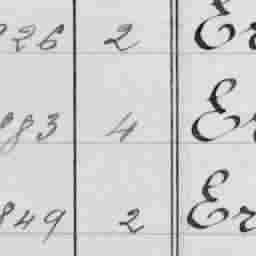 26 2 Er
83 4 Er
849 2 Er